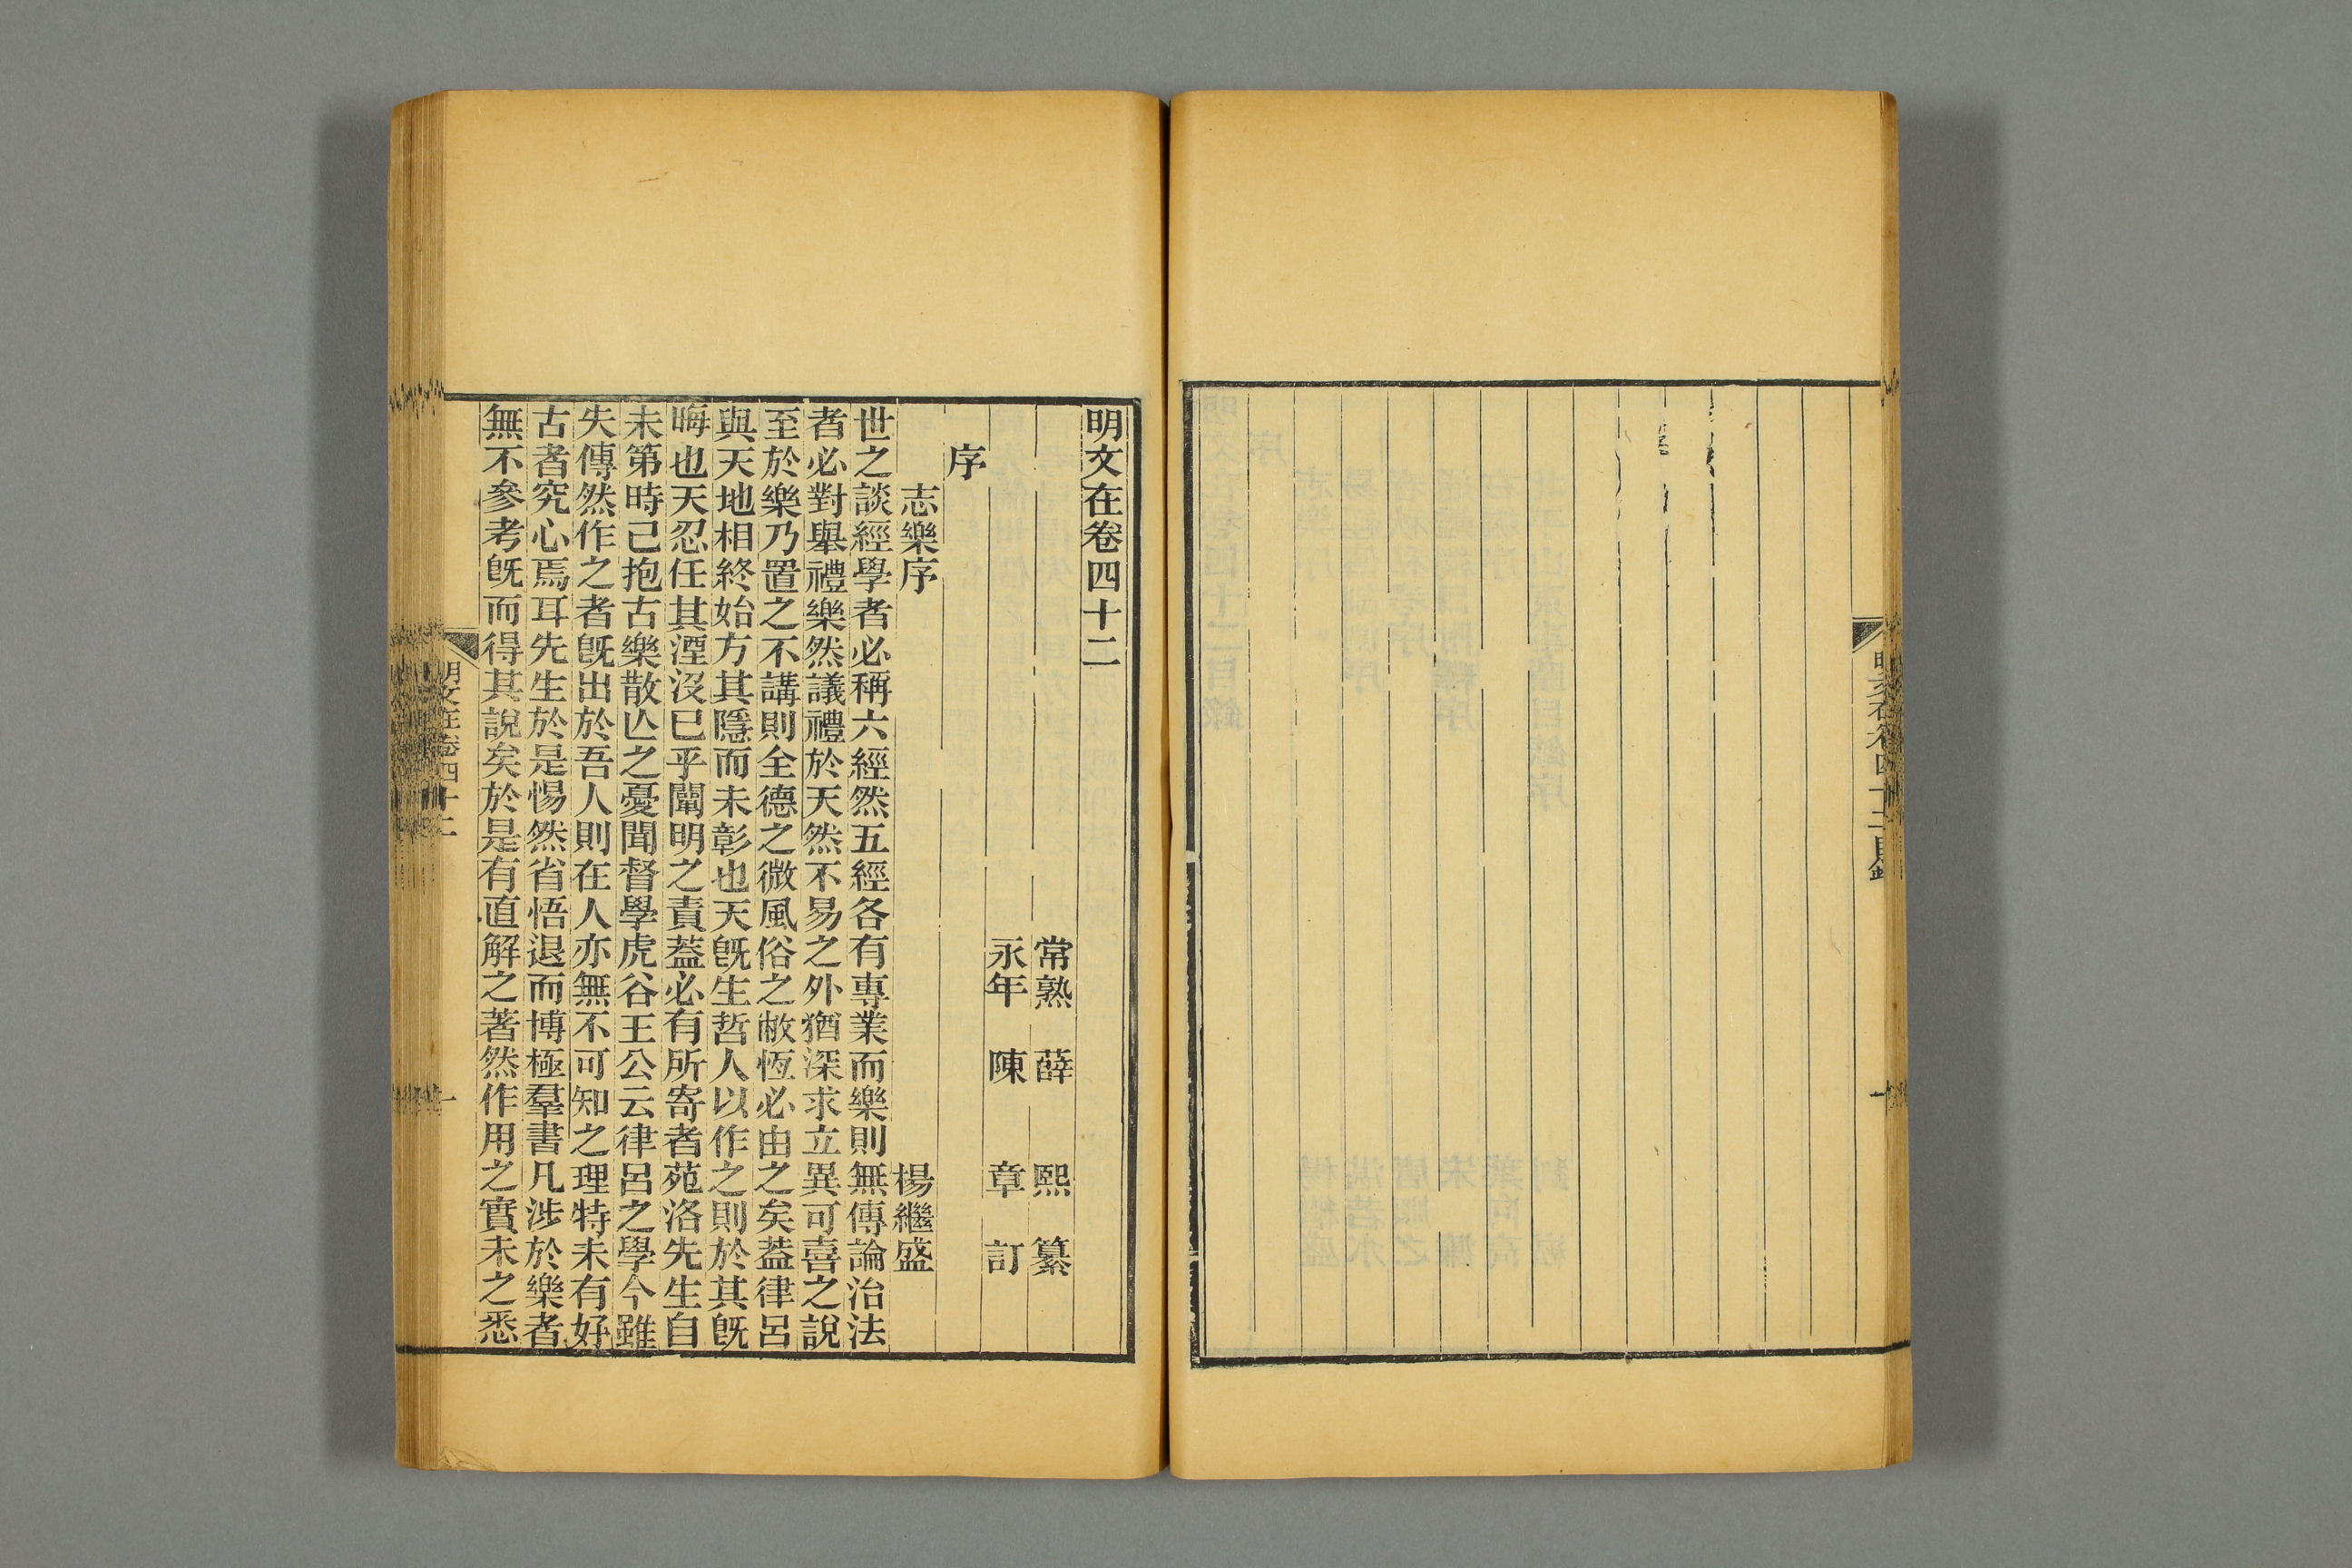 明文在卷四十二目錄
一
明文在卷四十二
常熟 薛 熙 纂
永年 陳 章 訂
序
志樂序 楊繼盛
世之談經學者必稱六經然五經各有專業而樂則無傳論治法
者必對舉禮樂然議禮於天然不易之外猶深求立異可喜之說
至於樂乃置之不講則全德之微風俗之敝恆必由之矣蓋律呂
與天地相終始方其隱而未彰也天旣生哲人以作之則於其旣
晦也天忍任其湮沒已乎闡明之責蓋必有所寄者苑洛先生自
未第時已抱古樂散亾之憂聞督學虎谷王公云律呂之學今雖
失傳然作之者旣出於吾人則在人亦無不可知之理特未有好
古者究心焉耳先生於是惕然省悟退而博極羣書凡涉於樂者
無不參考旣而得其說矣於是有直解之著然作用之實未之悉
明文在卷四十二
一